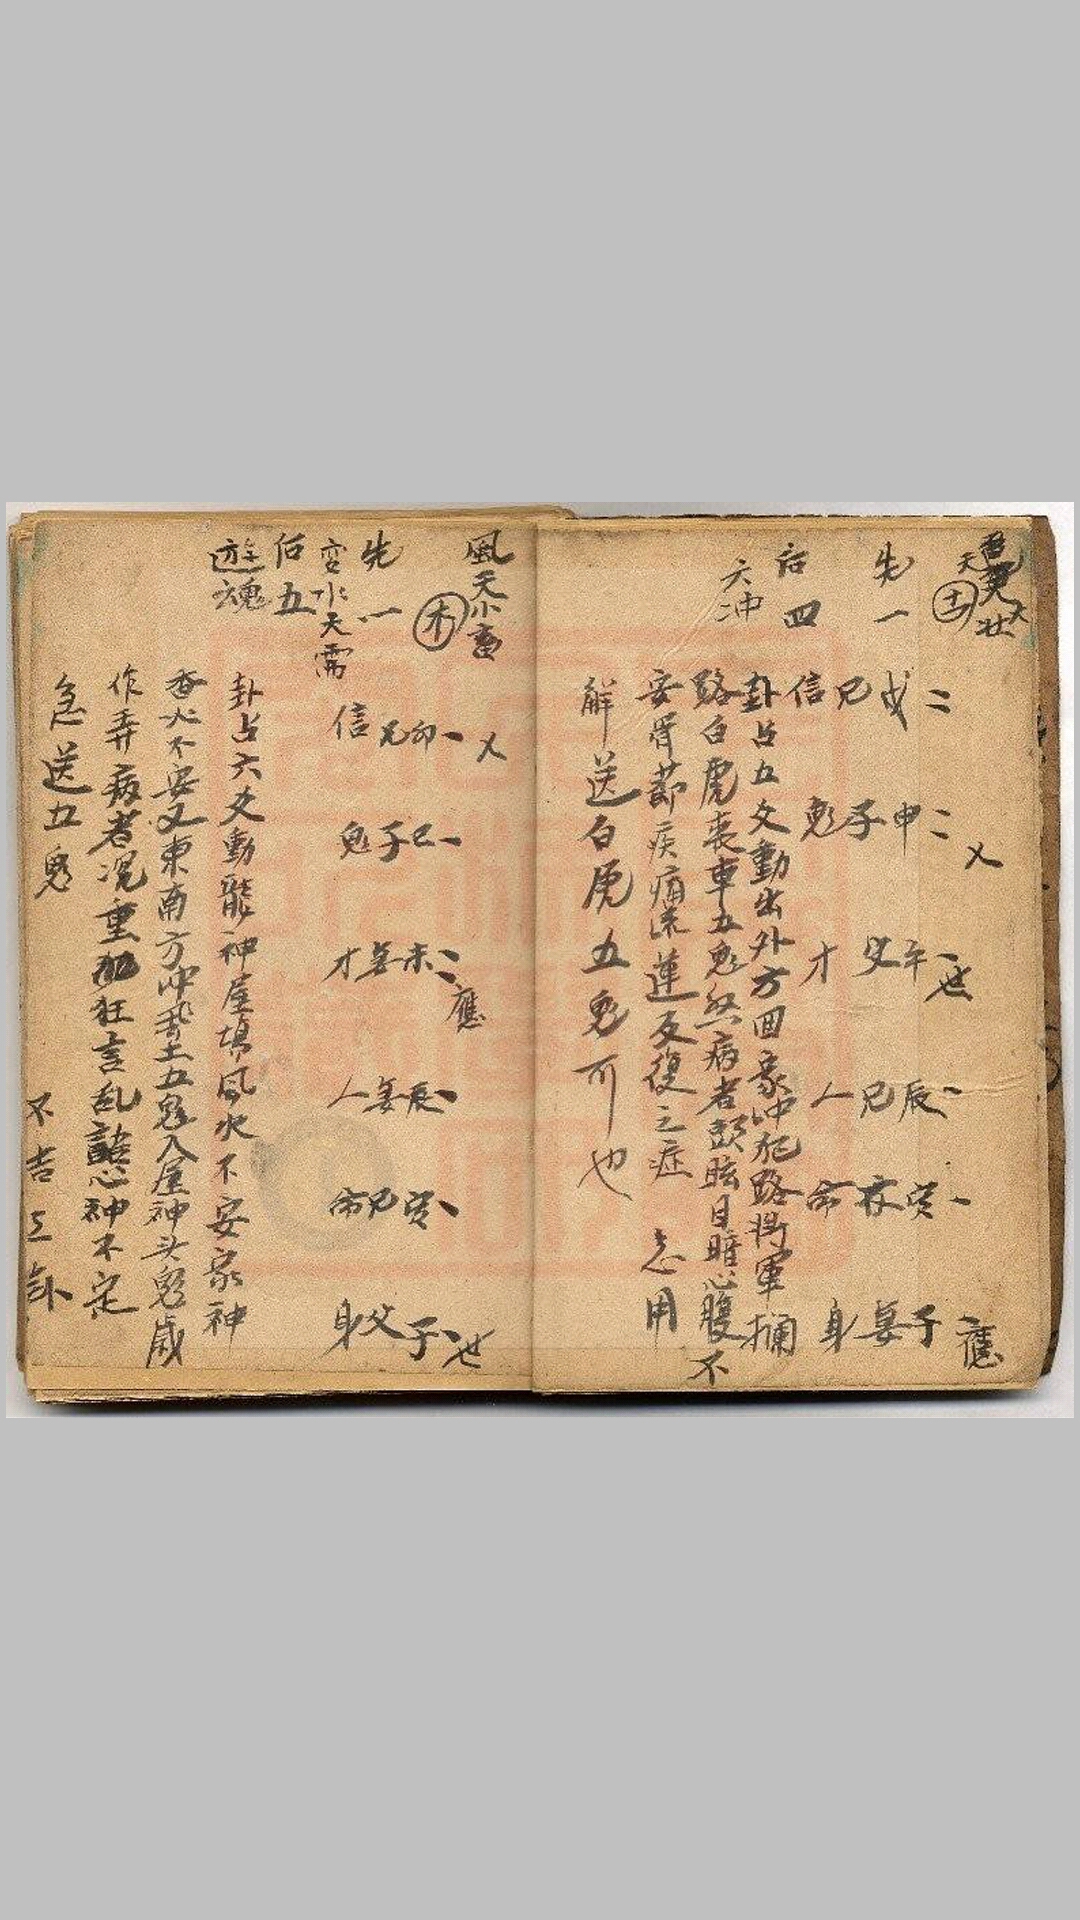 天大壯
土
先一
后四
六冲
二戌兄信
二申子鬼
乂
、午父才
世
、辰兄人
、寅 命
子妻身
應
卦占五爻動出外方回家冲犯路將軍攔
路白虎喪車五鬼然病者頭眩目暗心腹不
安骨節疾痛流連反復之症 急用
解送白虎五鬼可也
風天小畜
木
先一
变水天需
后五
遊魂
乂
、卯兄信
、巳子鬼
未妻才
應
、辰妻人
、寅兄命
、子父身
世
卦占六爻動龍神屋墳風水不安家神
香火不安又東南方冲 土五鬼入屋神头鬼歳
作弄病者況重 狂言乱 心神不定
急送五鬼
不吉之卦